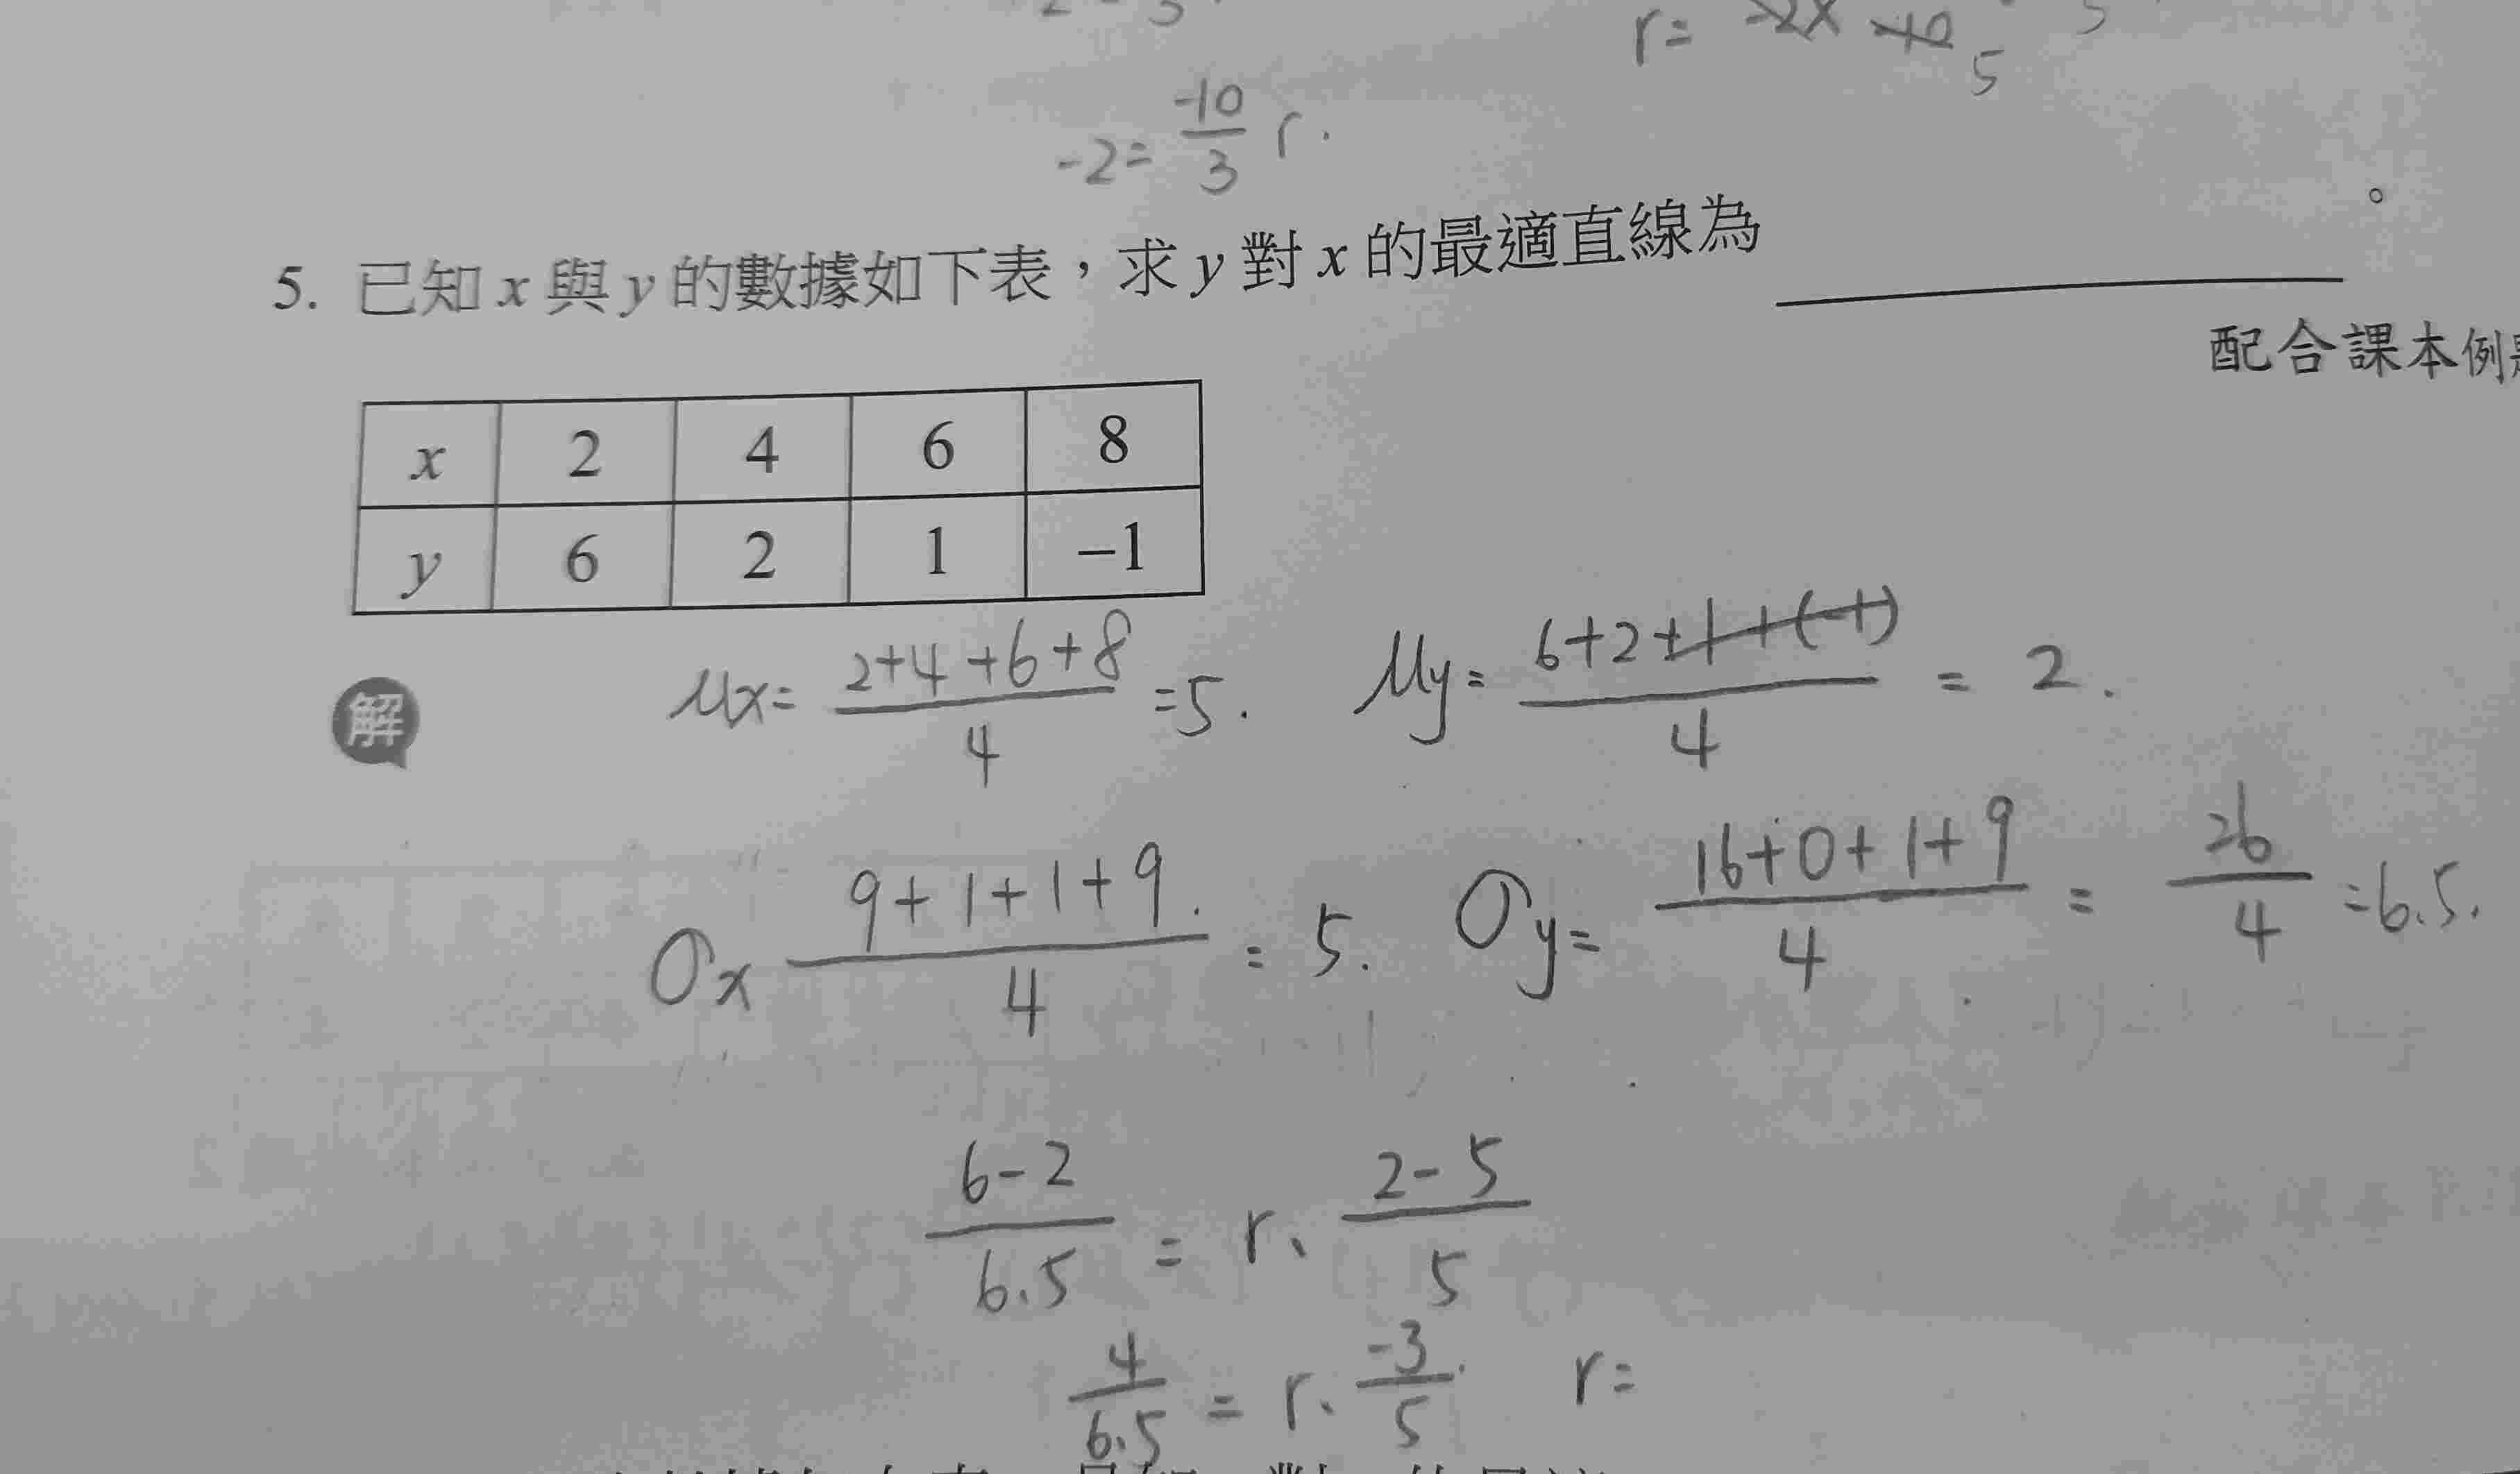 r= -2x -10 5
-2= -10/3 r.
5. 已知 x 與 y 的數據如下表，求 y 對 x 的最適直線為＿＿＿＿。
配合課本例
x 2 4 6 8
y 6 2 1 −1
解
μx= 2+4+6+8/4 =5. μy= 6+2+1+(-1)/4 = 2.
σx 9+1+1+9./4 = 5. σy= 16+0+1+9/4 = 26/4 =6.5.
6-2/6.5 = r、2-5/5
4/6.5 = r、-3/5. r=